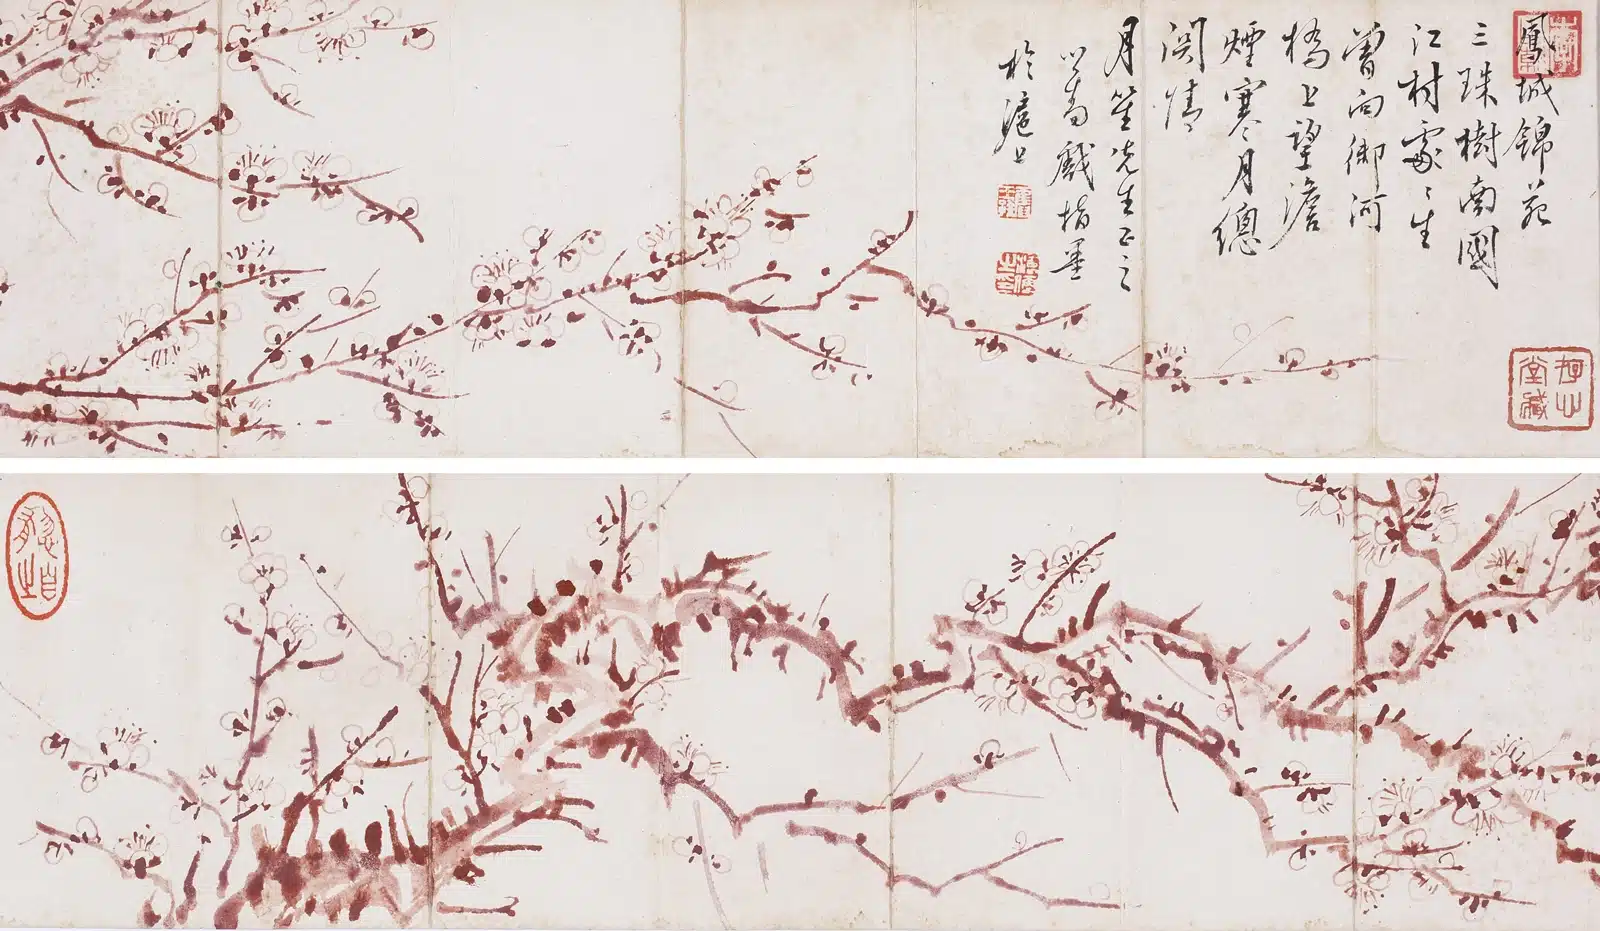 鳳城錦苑
三珠樹南國
江村處〻生
曾向御河
橋上望澹
煙寒月總
關情
月笙先生正之
心畬戲指墨
於滬上
舊王孫